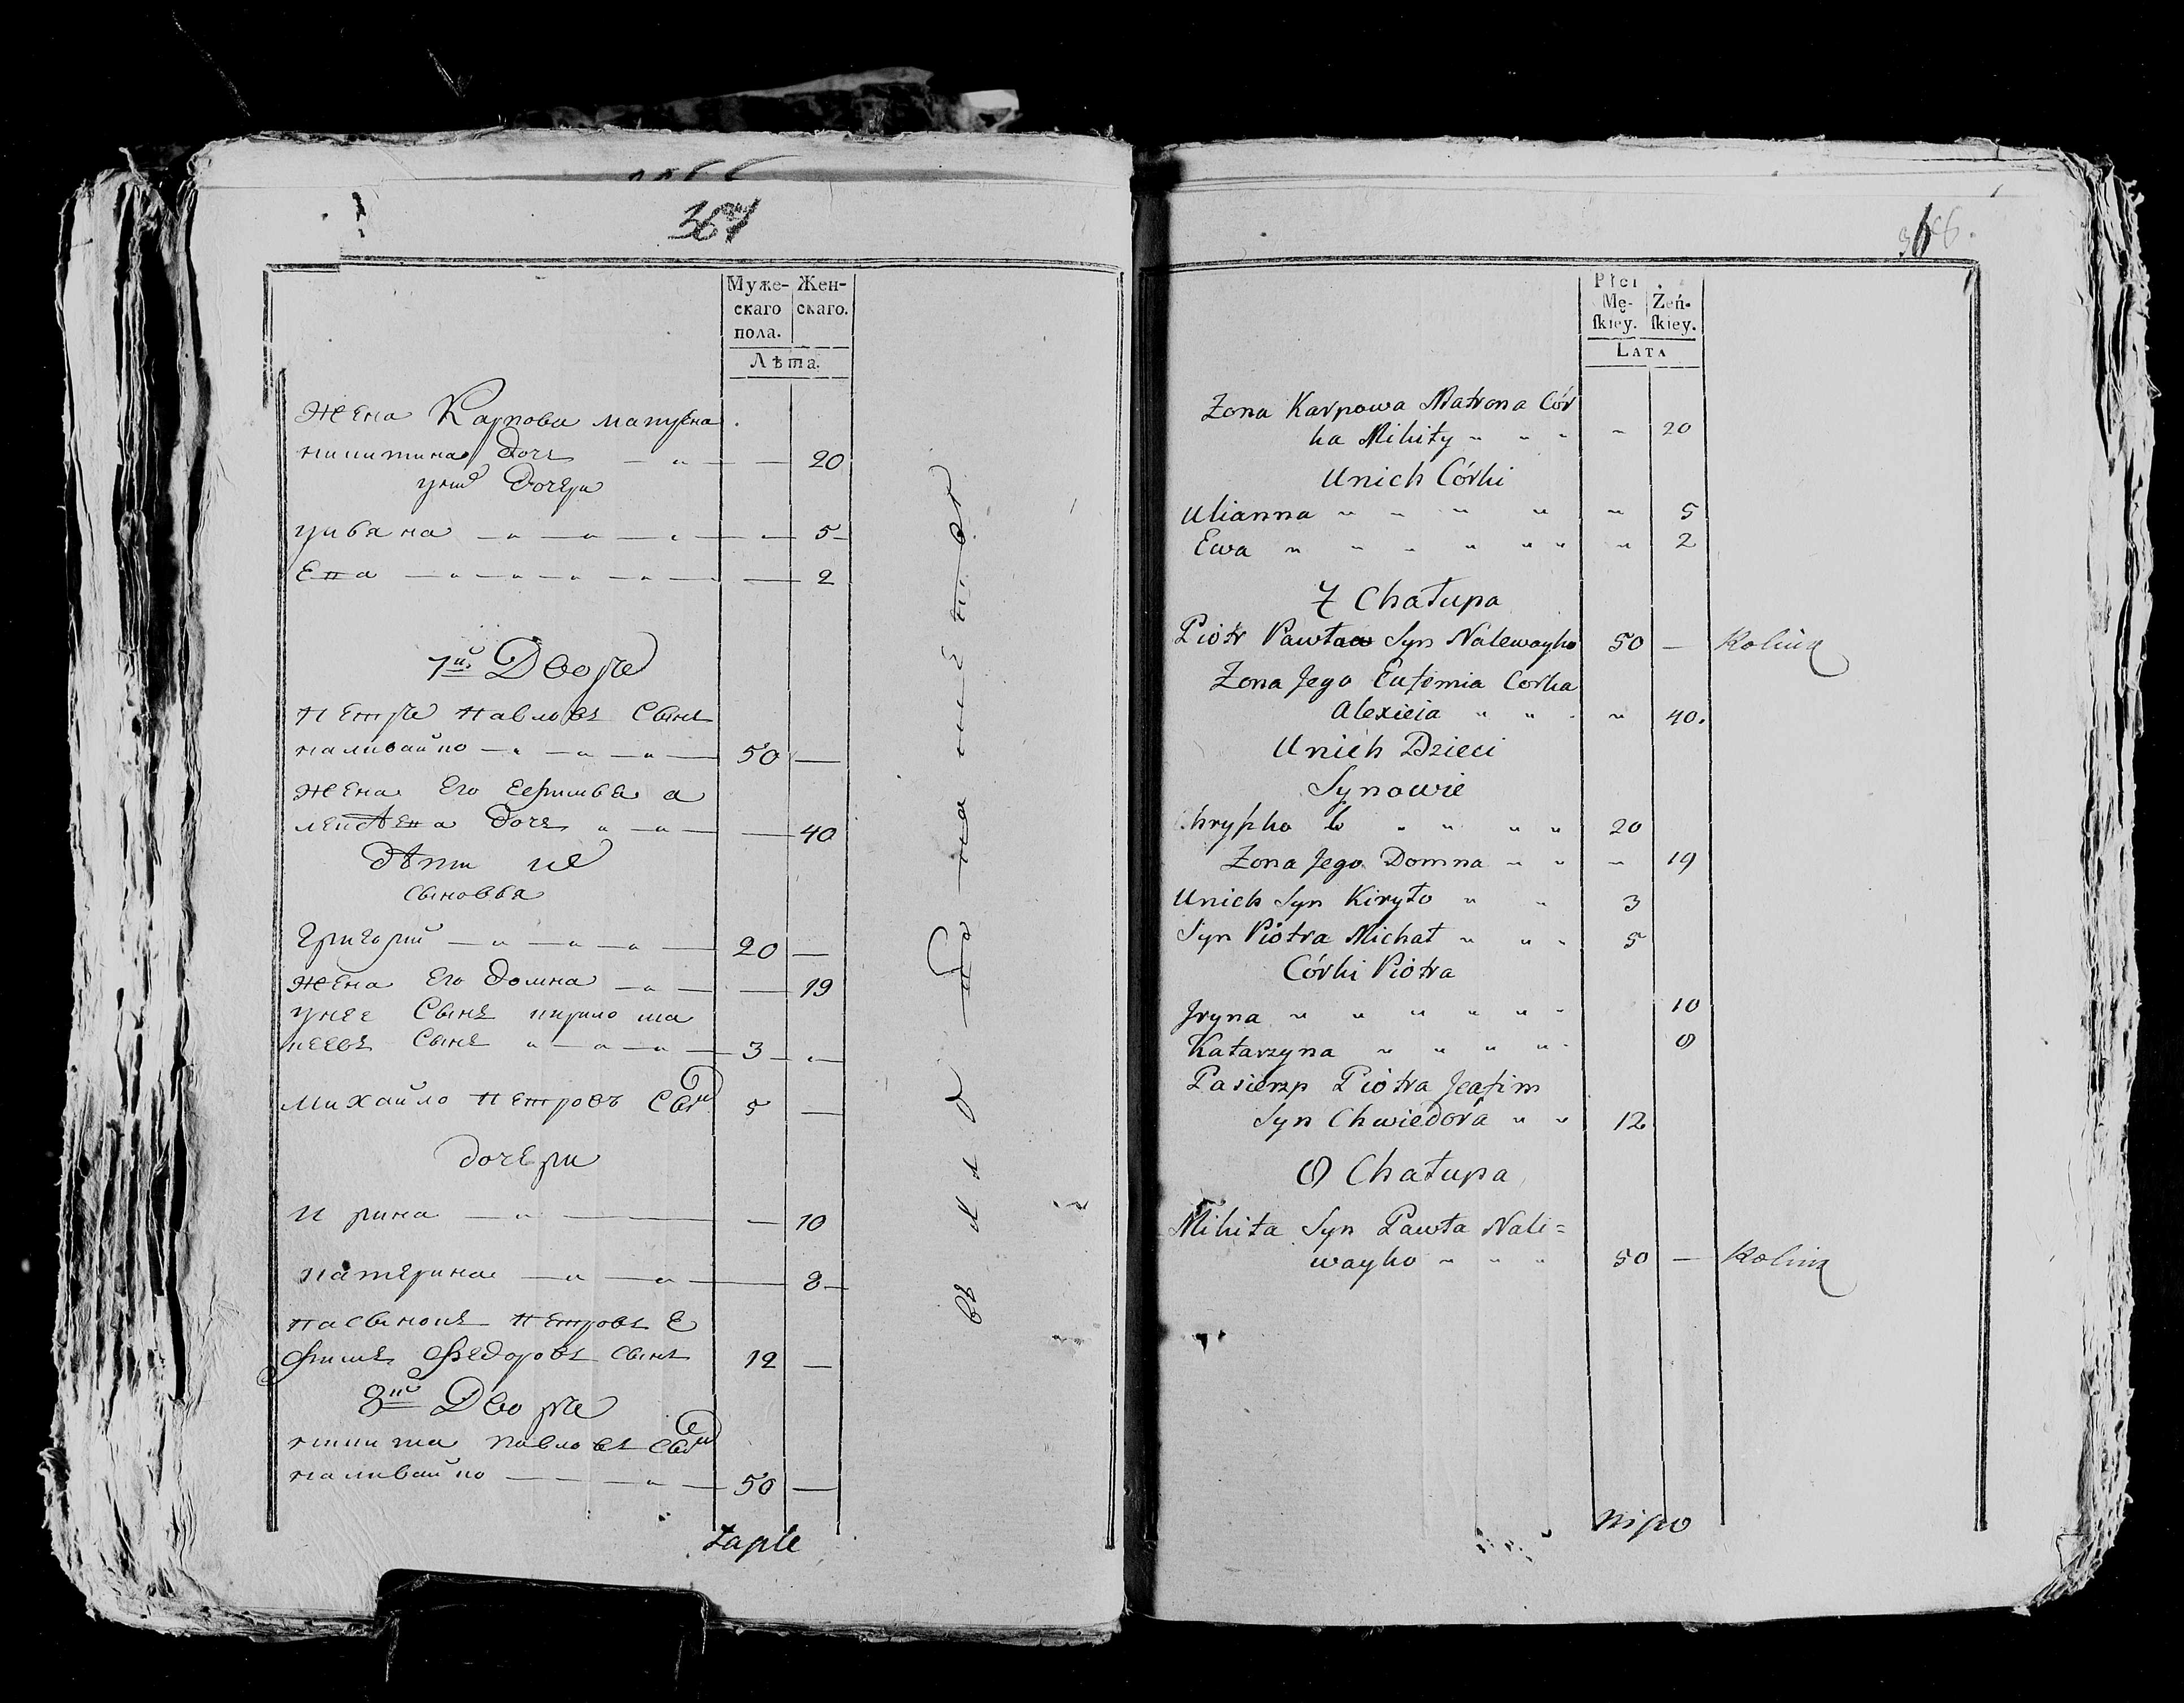 367
Муже- Жен-
скаго скаго.
пола.
Лѣта.
жена Карпова матрена
никитина дочь 20
у них дочери
ульяна 5
Ева 2
7й Дворъ
Петръ Павловъ Сынъ
наливайко 50
жена Его Ефимья а
леѯѣева дочь 40
дѣти их
сыновья
Григорий 20
жена Его домна 19
у нее Сынъ кирило
Сынъ 3
михайло Петровъ Сын 5
дочери
Ирина 10
катерина 8
пасынокъ Петровъ Е
фимъ Федоровъ сынъ 12
8й Дворъ
никита павловъ Сын
наливайко 50
Płci
Mę- Żeń-
ſkiey. ſkiey.
LATA
Zona Karpowa Matrona Cór
ka Mikity " " " " 20
Unich Córki
Ulianna " " " " " 5
Ewa " " " " " " " 2
7 Chałupa
Piotr Pawła Syn Nalewayko 50 —
Zona Jego Eufemia Corka
Alexieia " " " 40.
Unich Dzieci
Synowie
Chryſko " " " " 20
Zona Jego Domna " " " 19
Unich Syn Kiryło " " 3
Syn Piotra Michał " " " 5
Córki Piotra
Jryna " " " " " " 10
Katarzyna " " " " " 8
Pasierzp Piotra Jeafim
Syn Chwiedora " " 12
8 Chałupa
Mikita Syn Pawła Nali=
wayko " " " 50 —